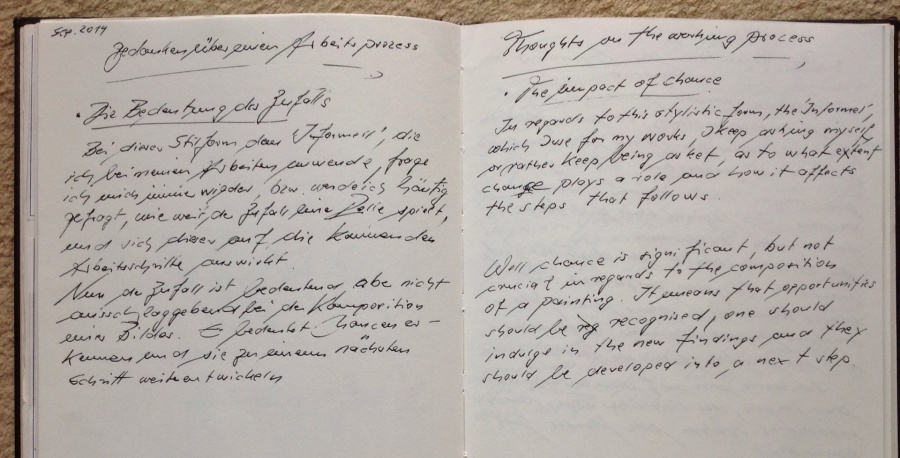 Sep. 2014
Gedanken über einen Arbeitsprozess
• Die Bedeutung des Zufalls
Bei dieser Stilform dem 'Informell', die
ich bei meinen Arbeiten anwende, frage
ich mich immer wieder, bzw. werde ich häufig
gefragt, wie weit der Zufall eine Rolle spielt,
und sich dieser auf die kommenden
Arbeitsschritte auswirkt.
Nun der Zufall ist bedeutend, aber nicht
ausschlaggebend bei der Komposition
eines Bildes. Es bedeutet Chancen er-
kennen und sie zu einem nächsten
Schritt weiterentwickeln
Thoughts on the working process
• The impact of chance
In regards to this stylistic form, the 'Informel',
which I use for my works, I keep asking myself,
or rather keep being asket, as to what extent
chance plays a role, and how it affects
the steps that follows.
Well chance is significant, but not
crucial in regards to the composition
of a painting. It means that opportunities
should be recognised, one should
indulge in the new findings and they
should be developed into a next step.